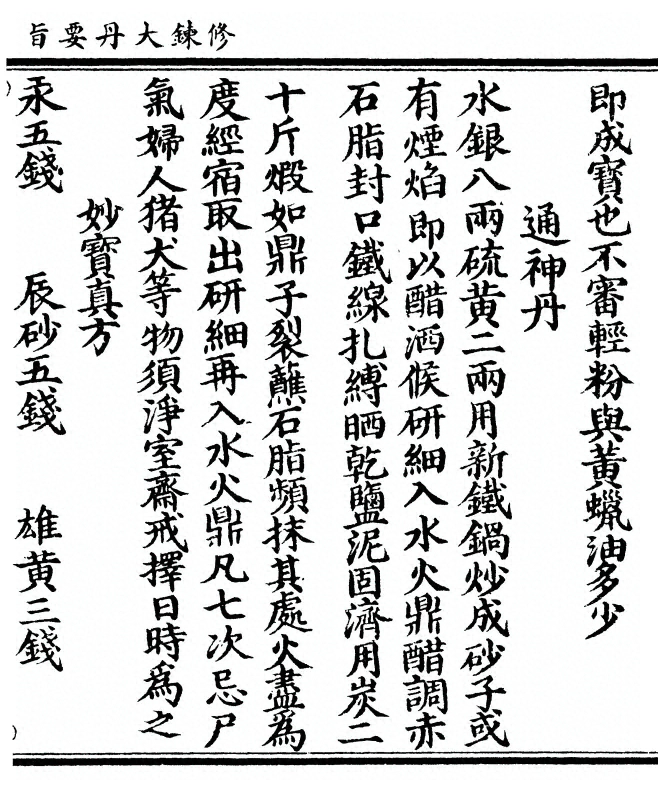 修鍊大丹要旨
即成寶也不審輕粉與黃蠟油多少
通神丹
水銀八兩硫黃二兩用新鐵鍋炒成砂子或
有煙焰即以醋洒候研細入水火鼎醋調赤
石脂封口鐵線扎縛晒乾鹽泥固濟用炭二
十斤煅如鼎子裂蘸石脂頻抹其處火盡為
度經宿取出研細再入水火鼎凡七次忌尸
氣婦人猪犬等物須淨室齋戒擇日時爲之
妙寶真方
汞五錢 辰砂五錢 雄黃三錢